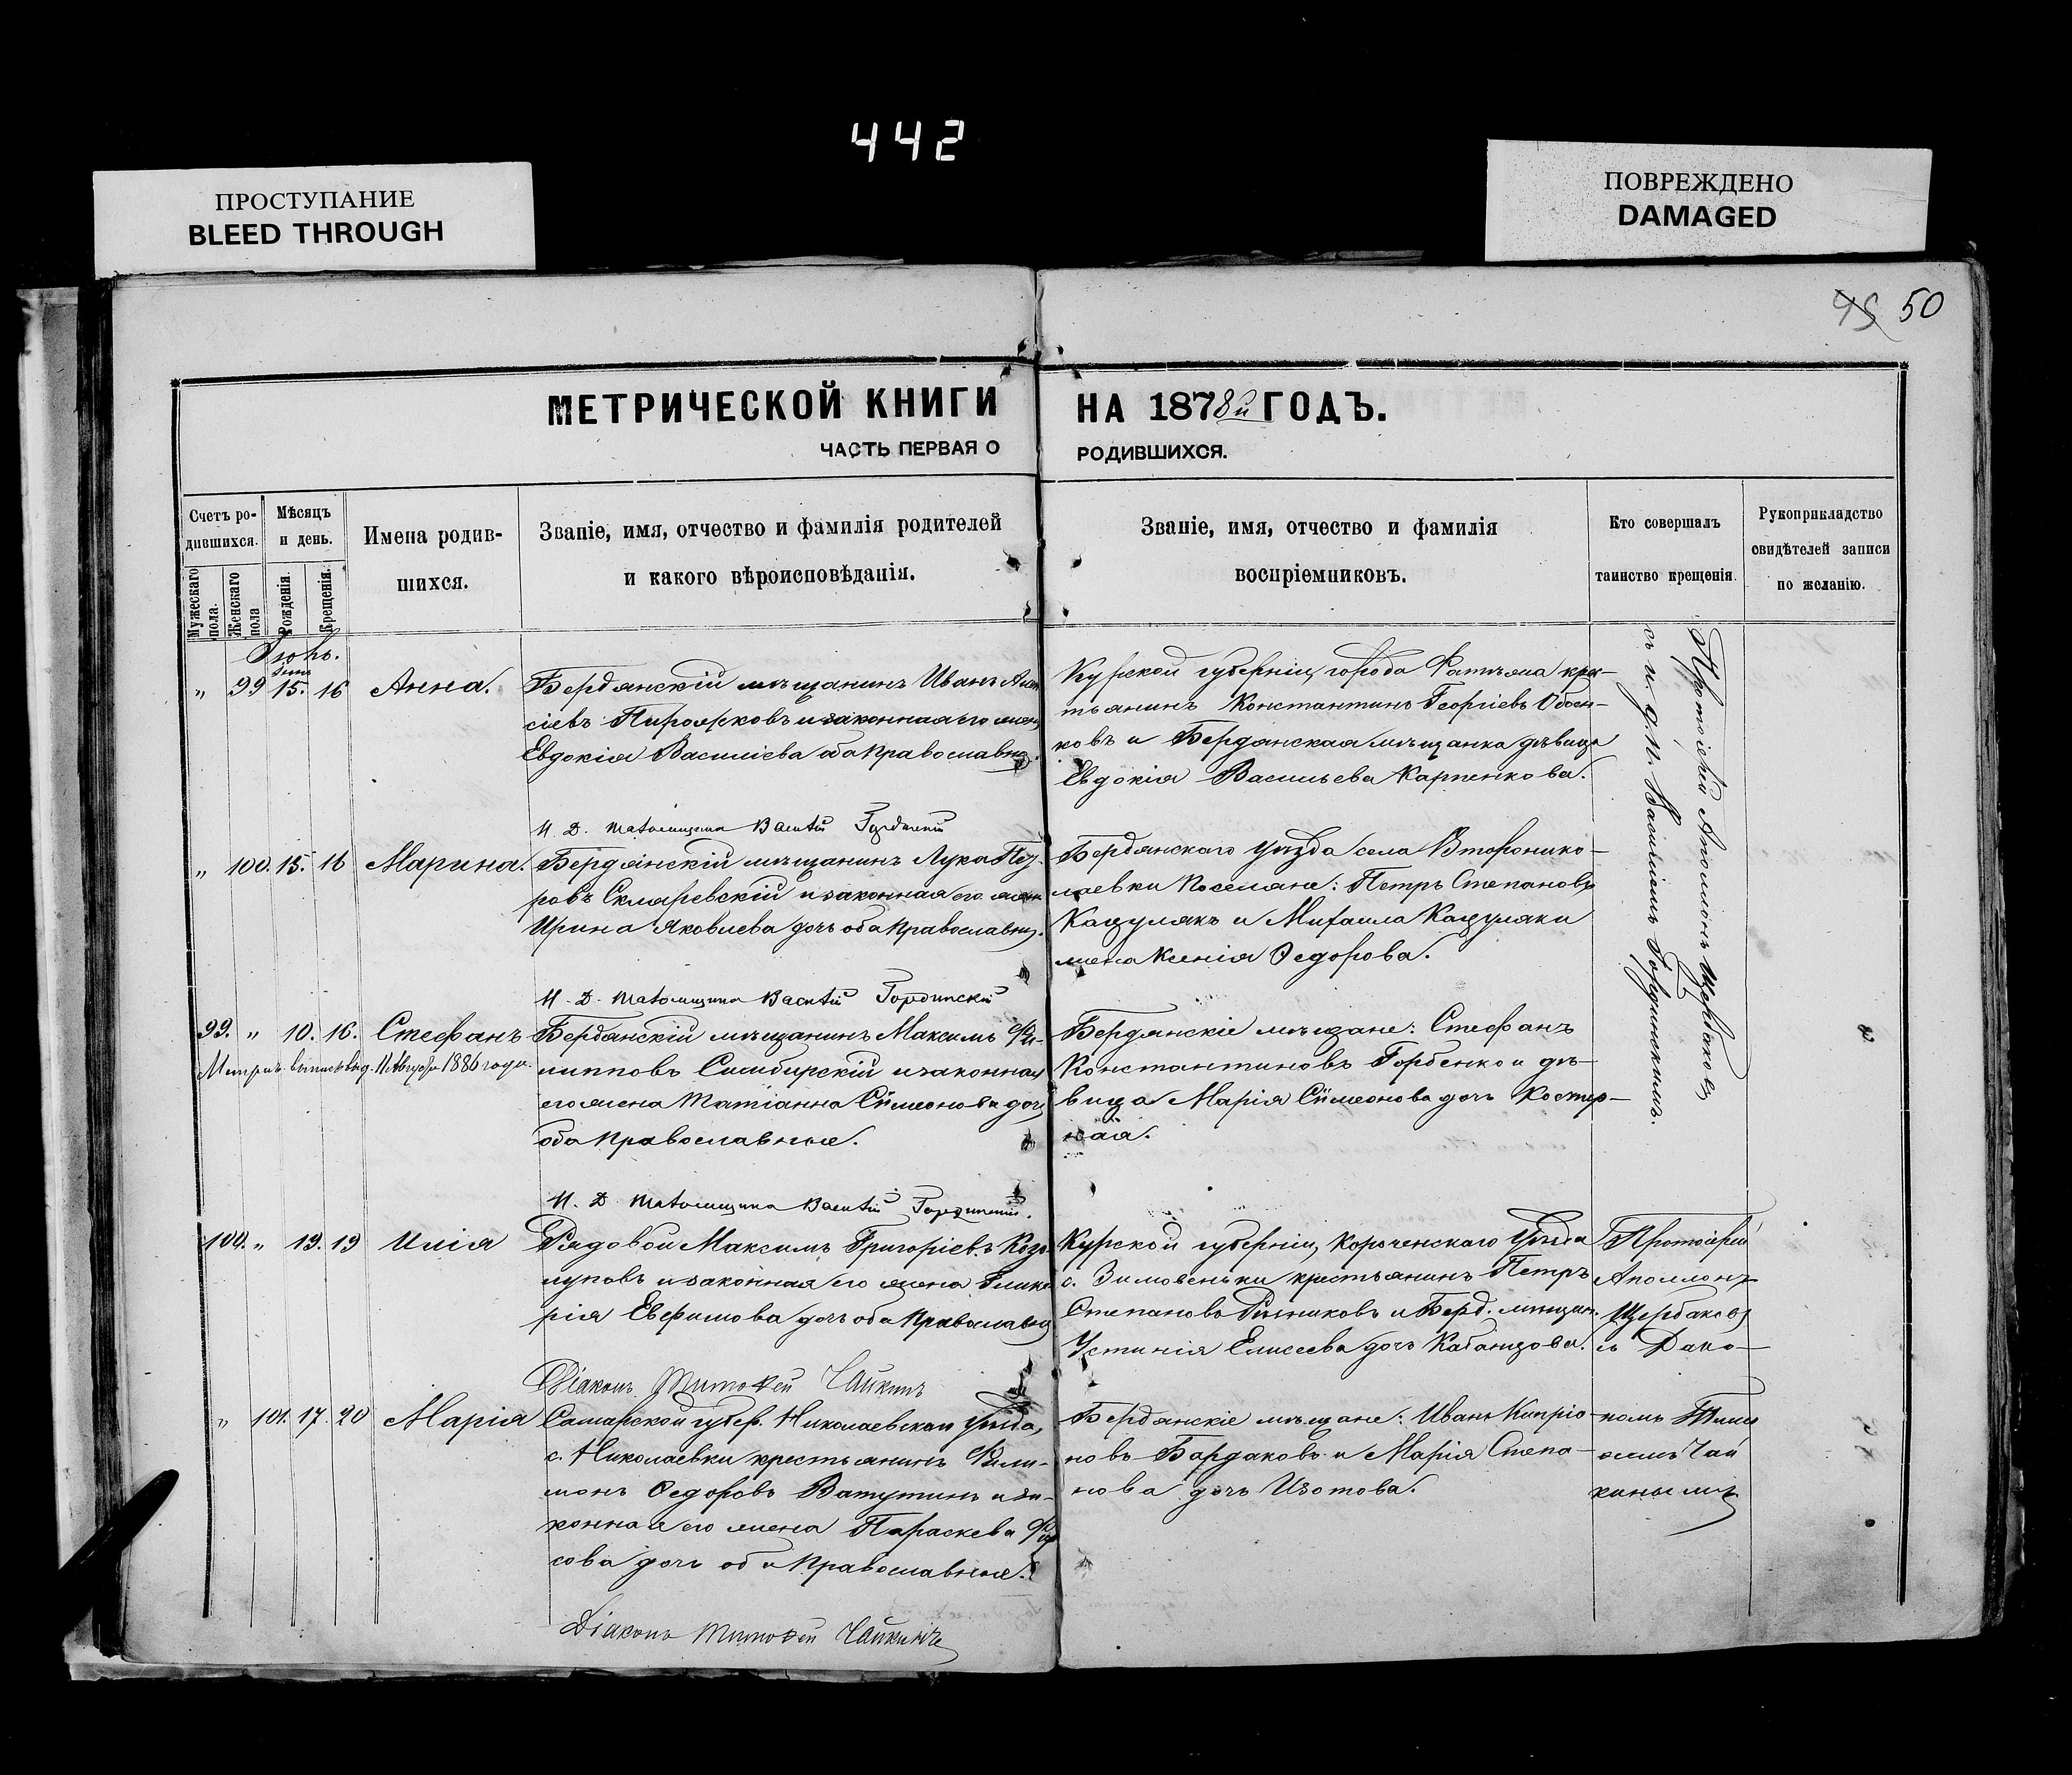 442
ПРОСТУПАНИЕ
BLEED THROUGH
ПОВРЕЖДЕНО
DAMAGED
50
МЕТРИЧЕСКОЙ КНИГИ НА 1878й ГОДЪ.
ЧАСТЬ ПЕРВАЯ О РОДИВШИХСЯ.
Счетъ ро-
дившихся.
Мужескаго пола.
Женскаго пола
Мѣсяцъ
и день.
Рожденія.
Крещенія.
Имена родив-
шихся.
Званіе, имя, отчество и фамилія родителей
и какого вѣроисповѣданія.
Званіе, имя, отчество и фамилія
воспріемниковъ.
Кто совершалъ
таинство крещенія.
Рукоприкладство
свидѣтелей записи
по желанію.
„ 99 15. 16 Анна.
Бердянскій мѣщанинъ Иванъ
сіевъ и законная его жена
Евдокія Василіева оба православные.
Курской губерніи, города Фатежа кре-
стьянинъ Константинъ Георгіевъ
ковъ и Бердянская мѣщанка дѣвица
Евдокія Васильева Карпенкова.
Протоіерей Аполлонъ Щербаковъ
съ и. д. п. Василіемъ Гординскимъ.
И. Д. Псаломщика Василій Гординскій
„ 100. 15. 16 Марина.
Бердянскій мѣщанинъ Лука Пет-
ровъ Скляревскій и законная его жена
Ирина Яковлева дочь оба православны.
Бердянскаго уѣзда села Второнико-
лаевки поселяне: Петръ Степановъ
Кацулякъ и Михаила Кацуляки
жена Ксенія Ѳедорова.
И. Д. Псаломщика Василій Гординскій
99. „ 10. 16. Стефанъ
Метрич. выпись выд. 11 Августа 1886 года.
Бердянскій мѣщанинъ Максимъ Фи-
липповъ Симбирскій и законная
его жена Татіанна Сѵмеонова дочь
оба православные.
Бердянскіе мѣщане: Стефанъ
Константиновъ Горбенко и дѣ-
вица Марія Сѵмеонова дочь Костер-
ная.
И. Д. Псаломщика Василій Гординскій.
100. „ 19. 19 Илія
Рядовой Максимъ Григоріевъ Козо-
луповъ и законная его жена Глике
рія Евфимова дочь оба православны
Курской губерніи, Короченскаго уѣзда
с. Зимовеньки крестьянинъ Петръ
Степановъ и Берд. мѣщан.
Устинія Елисеева дочь Кабанцова.
Протоіерей
Аполлонъ
Щербаковъ
съ Діако-
Діаконъ Тимоѳей Чайкинъ
„ 101. 17. 20 Марія
Самарской губер. Николаевскаго уѣзда,
с. Николаевки крестьянинъ Фили-
монъ Ѳедоровъ Ватутинъ и за-
конная его жена Параскева Фир
сова дочь оба православные.
Бердянскіе мѣщане: Иванъ Кипріа-
новъ Бардаковъ и Марія Степа-
нова дочь Изотова.
номъ Тимо
ѳеемъ Чай
кинымъ
Діаконъ Тимоѳей Чайкинъ